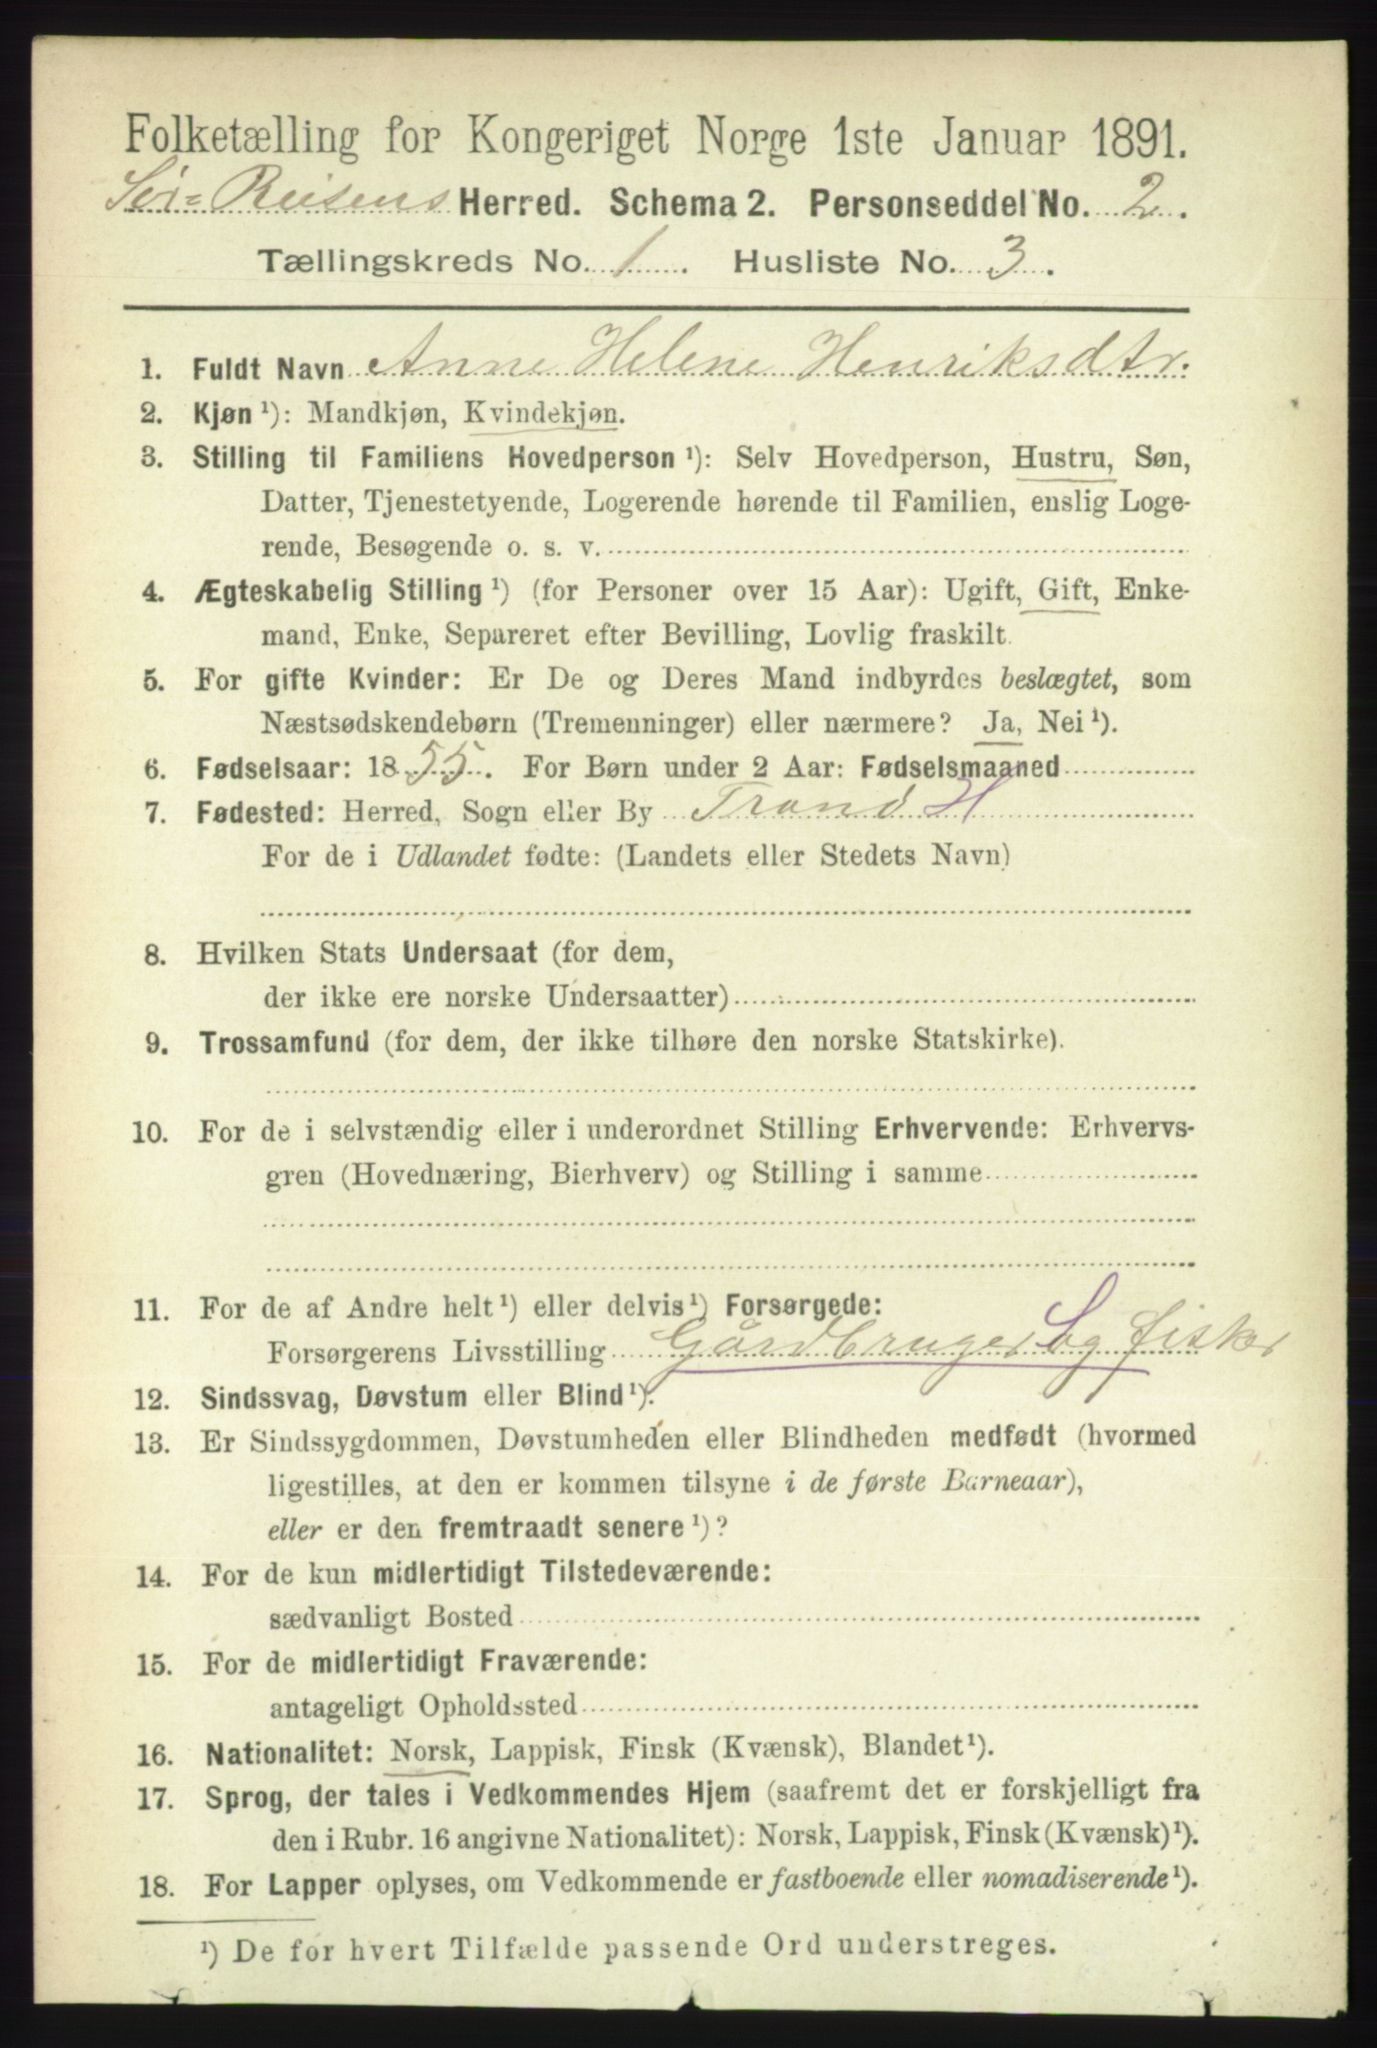 Folketælling for Kongeriget Norge 1ste Januar 1891.
Sør-Reisens Herred. Schema 2. Personseddel No. 2.
Tællingskreds No. 1. Husliste No. 3.
1. Fuldt Navn Anne Helene Henriksdtr.
2. Kjøn ¹): Mandkjøn, Kvindekjøn.
3. Stilling til Familiens Hovedperson ¹): Selv Hovedperson, Hustru, Søn,
Datter, Tjenestetyende, Logerende hørende til Familien, enslig Loge-
rende, Besøgende o. s. v.
4. Ægteskabelig Stilling ¹) (for Personer over 15 Aar): Ugift, Gift, Enke-
mand, Enke, Separeret efter Bevilling, Lovlig fraskilt.
5. For gifte Kvinder: Er De og Deres Mand indbyrdes beslægtet, som
Næstsødskendebørn (Tremenninger) eller nærmere? Ja, Nei ¹).
6. Fødselsaar: 1855. For Børn under 2 Aar: Fødselsmaaned
7. Fødested: Herred, Sogn eller By Tranø H
For de i Udlandet fødte: (Landets eller Stedets Navn)
8. Hvilken Stats Undersaat (for dem,
der ikke ere norske Undersaatter)
9. Trossamfund (for dem, der ikke tilhøre den norske Statskirke).
10. For de i selvstændig eller i underordnet Stilling Erhvervende: Erhvervs-
gren (Hovednæring, Bierhverv) og Stilling i samme
11. For de af Andre helt ¹) eller delvis ¹) Forsørgede:
Forsørgerens Livsstilling Gårdbruger S og fisker
12. Sindssvag, Døvstum eller Blind ¹).
13. Er Sindssygdommen, Døvstumheden eller Blindheden medfødt (hvormed
ligestilles, at den er kommen tilsyne i de første Barneaar),
eller er den fremtraadt senere ¹)?
14. For de kun midlertidigt Tilstedeværende:
sædvanligt Bosted
15. For de midlertidigt Fraværende:
antageligt Opholdssted
16. Nationalitet: Norsk, Lappisk, Finsk (Kvænsk), Blandet ¹).
17. Sprog, der tales i Vedkommendes Hjem (saafremt det er forskjelligt fra
den i Rubr. 16 angivne Nationalitet): Norsk, Lappisk, Finsk (Kvænsk) ¹).
18. For Lapper oplyses, om Vedkommende er fastboende eller nomadiserende ¹).
¹) De for hvert Tilfælde passende Ord understreges.